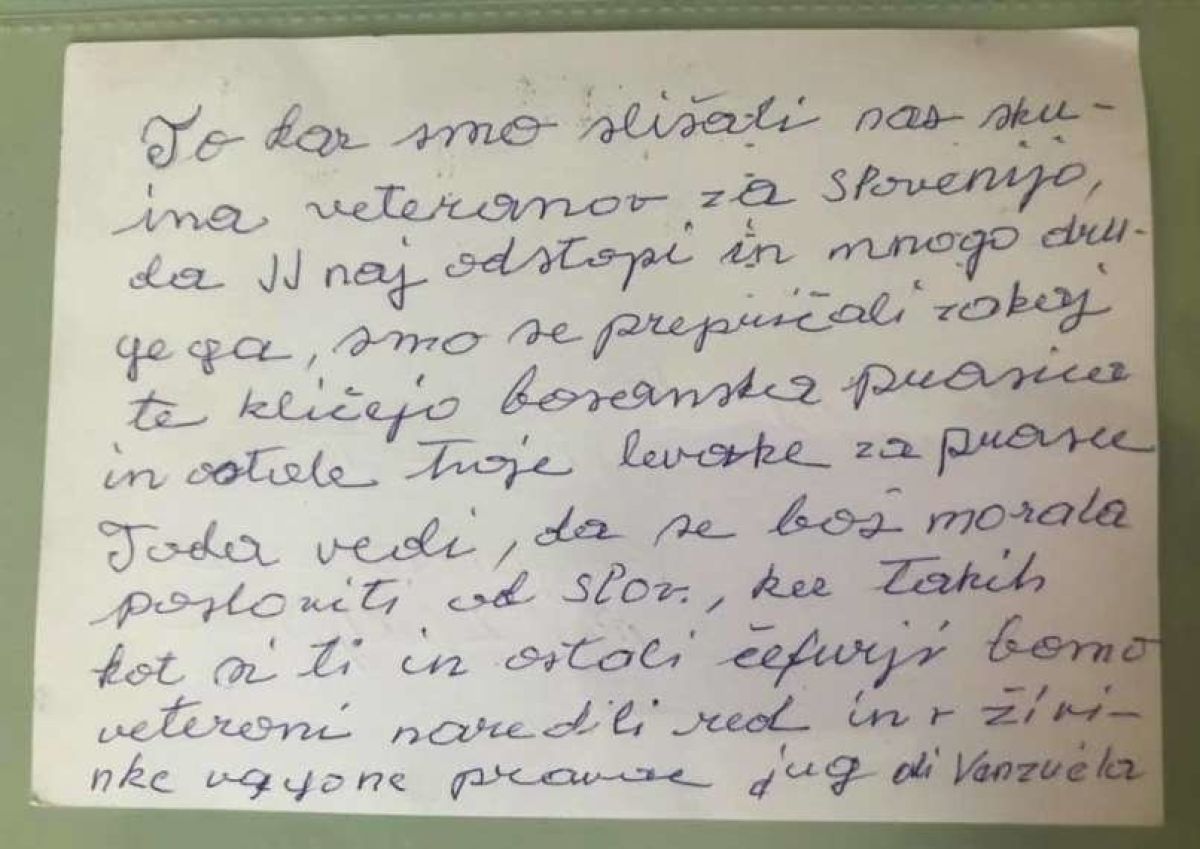 To kar smo slišali nas sku-
ina veteranov za Slovenijo,
da JJ naj odstopi in mnogo dru-
gega, smo se prepričali zakaj
te kličejo bosanska prasica
in ostale tvoje levake za prasce
Toda vedi, da se boš morala
posloviti od Slov., ker takih
kot si ti in ostali čefurji bomo
veterani naredili red in v živi-
nke vagone pravac jug ali Vanzuela